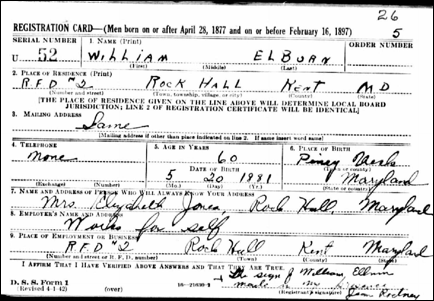 26
REGISTRATION CARD—(Men born on or after April 28, 1877 and on or before February 16, 1897) 5
SERIAL NUMBER 1. NAME (Print) ORDER NUMBER
U 52 WILLIAM ELBURN
(First) (Middle) (Last)
2. PLACE OF RESIDENCE (Print)
R.F.D #2 ROCK HALL KENT MD
(Number and street) (Town, township, village, or city) (County) (State)
[THE PLACE OF RESIDENCE GIVEN ON THE LINE ABOVE WILL DETERMINE LOCAL BOARD
JURISDICTION; LINE 2 OF REGISTRATION CERTIFICATE WILL BE IDENTICAL]
3. MAILING ADDRESS
Same
[Mailing address if other than place indicated on line 2. If same insert word same]
4. TELEPHONE 5. AGE IN YEARS 6. PLACE OF BIRTH
None 60 Piney Neck
DATE OF BIRTH (Town or county)
5 20 1881 Maryland
(Exchange) (Number) (Mo.) (Day) (Yr.) (State or country)
7. NAME AND ADDRESS OF PERSON WHO WILL ALWAYS KNOW YOUR ADDRESS
Mrs. Elizabeth Jones Rock Hall, Maryland
8. EMPLOYER'S NAME AND ADDRESS
Works for self
9. PLACE OF EMPLOYMENT OR BUSINESS
R.F.D #2 Rock Hall Kent Maryland
(Number and street or R. F. D. number) (Town) (County) (State)
I AFFIRM THAT I HAVE VERIFIED ABOVE ANSWERS AND THAT THEY ARE TRUE.
The sign of William Elburn
D. S. S. Form 1
(Revised 4-1-42) (over) (Registrant's signature)